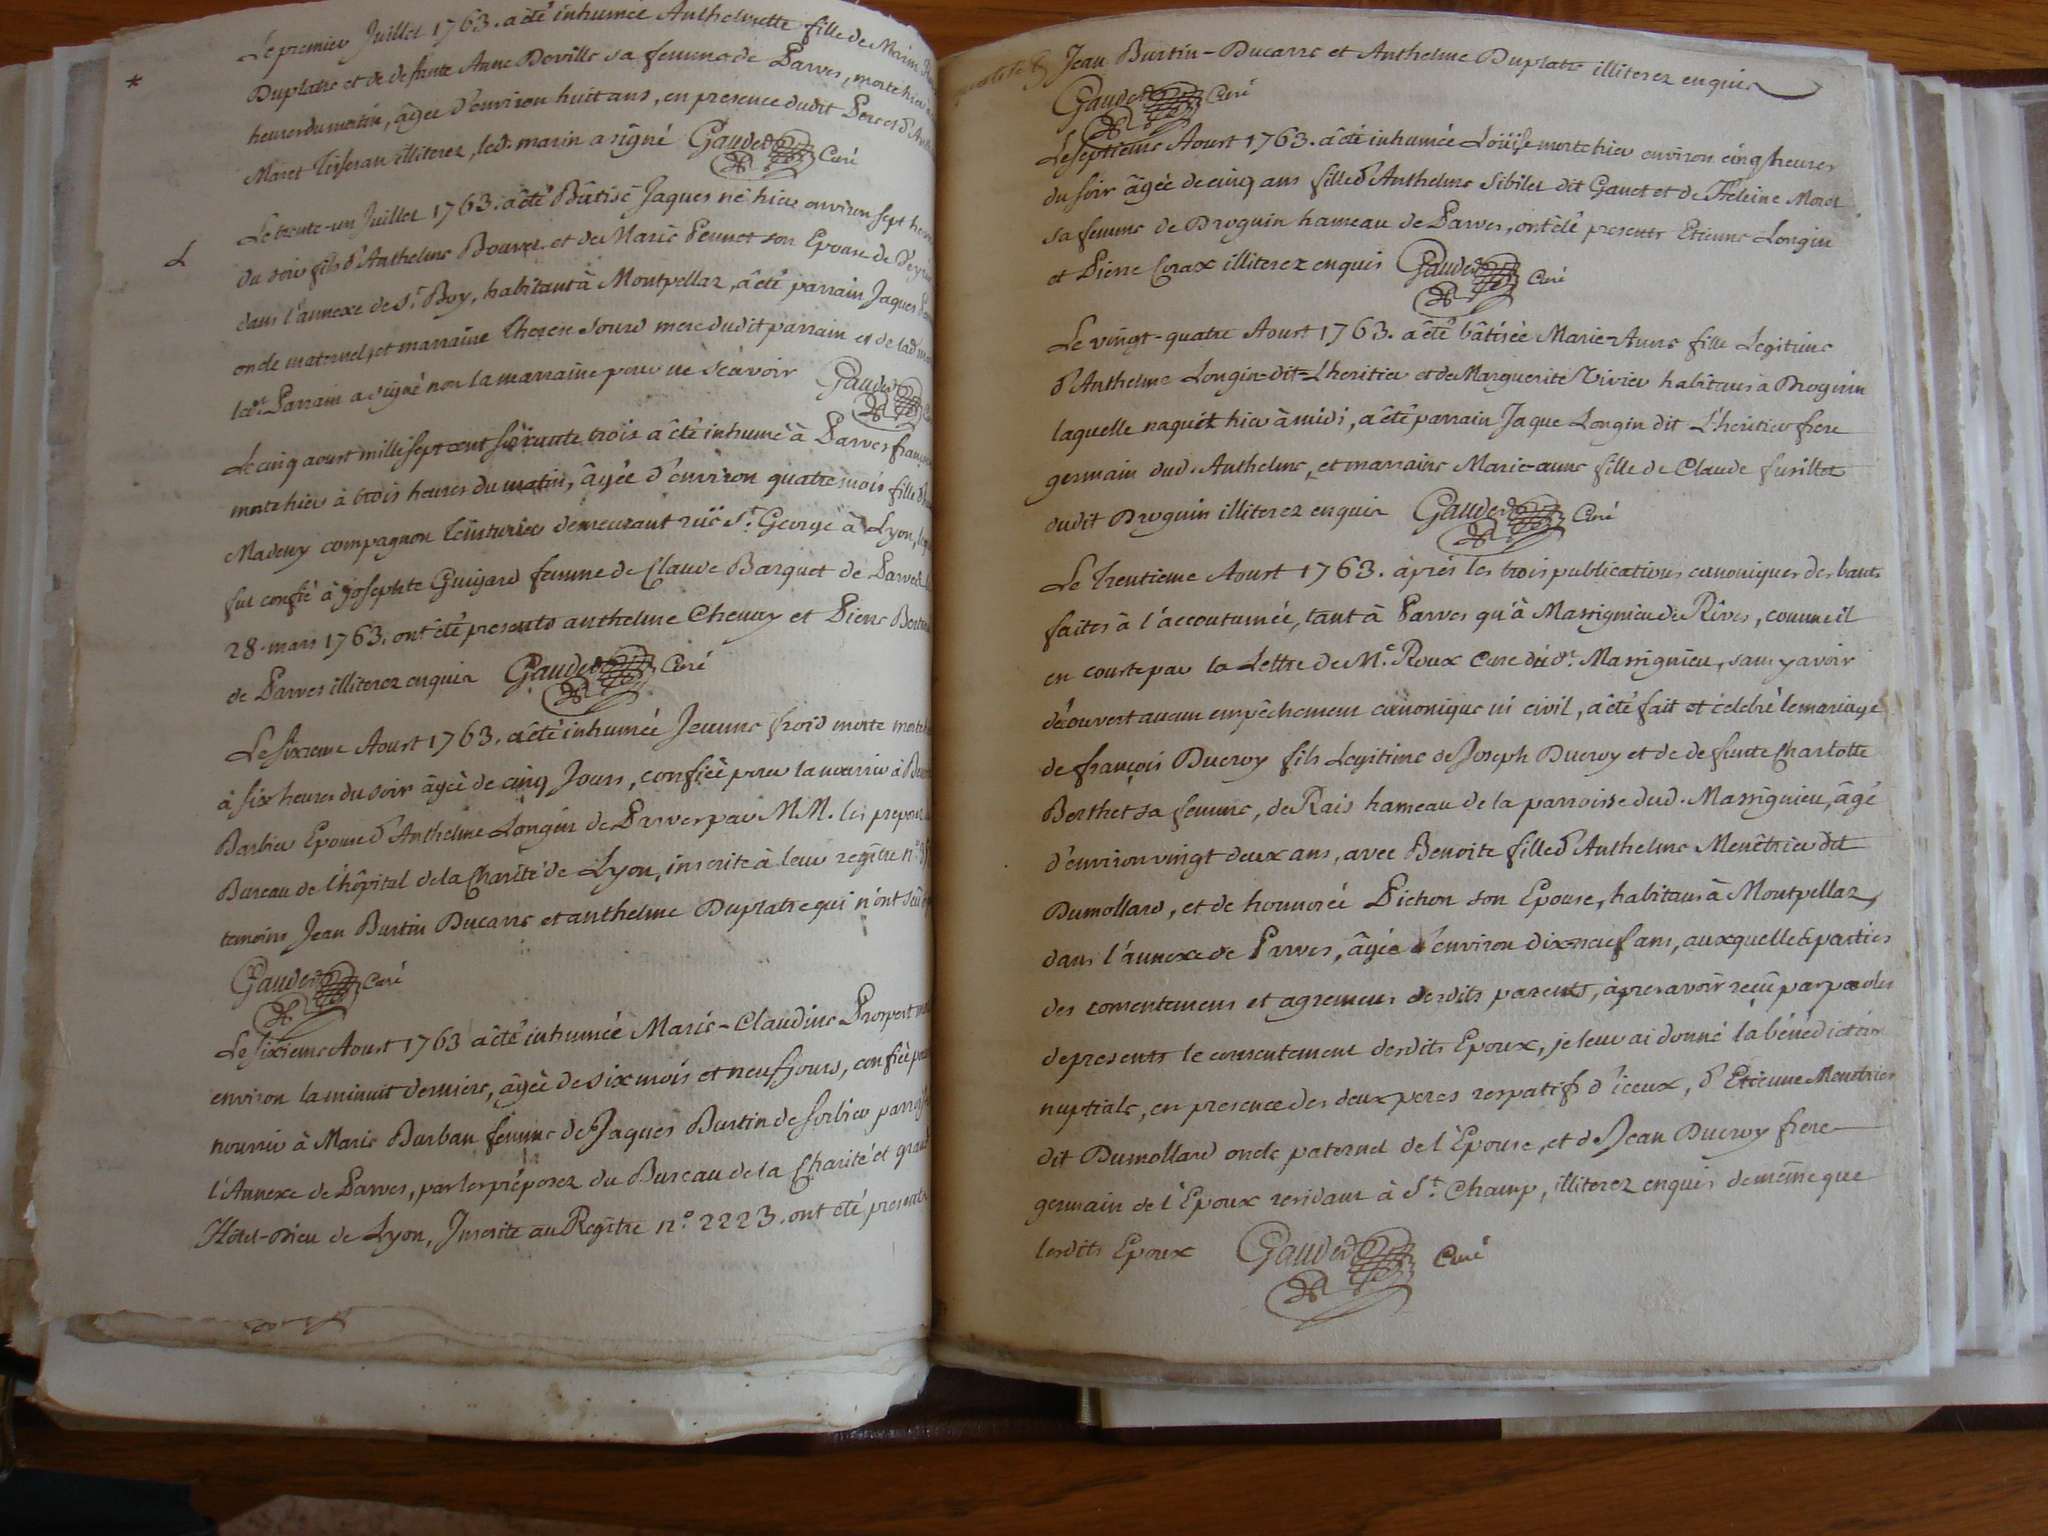 Le premier Juillet 1763. a été inhumée Anthelmette fille de Marin
Duplatre et de defunte Anne Deville sa femme de Parves, morte hier
heures du matin, âgée d'environ huit ans, en presence dudit
Maret Tisseran illiterez, led. marin a signé Gaudet Curé
Le trente-un Juillet 1763. a été Bâtisé Jaques né hier environ sept
du soir fils d'Anthelme Bouvet et de Marie Pennet son Epouse de
dans l'annexe de St. Boy, habitant à Montpellaz, a été parrain Jaques
oncle maternel, et marraine Therese Sourd mere dudit parrain et de lad.
led. Parrain a signé non la marraine pour ne scavoir Gaudet
Le cinq aoust mille sept cent soixante trois a été inhumé à Parves
morte hier à trois heures du matin, âgée d'environ quatre mois fille
Madeuy compagnon Teinturier demeurant rüe St. George à Lyon,
fut confié à Josephte Guigard femme de Claude Barquet de Parves
28. mars 1763. ont été presents anthelme Chevay et Pierre
de Parves illiterez enquis Gaudet Curé
Le sixieme Aoust 1763. a été inhumée Jeanne froid morte
à six heures du soir âgée de cinq Jours, confiée pour la nourrir à
Barbier Epouse d'Anthelme Longin de Parves par MM. les
Bureau de l'hôpital de la Charité de Lyon, inscrite à leur regître n.°
temoins Jean Burtin Ducarre et anthelme Duplatre qui n'ont sçû
Gaudet Curé
Le sixieme Aoust 1763 a été inhumée Marie-Claudine Prospert
environ la minuit derniere, âgée de six mois et neuf jours, confiée
nourrir à Marie Burban femme de Jaques Burtin de Sorbier
l'Annexe de Parves, par les préposez du Bureau de la Charité et grand
Hôtel-Dieu de Lyon, Inscrite au Regître n.° 2223. ont été presents
Jean Burtin-Ducarre et Anthelme Duplatre illiterez enquis
Gaudet Curé
Le septieme Aoust 1763. a été inhumée Loüise morte hier environ cinq heures
du soir âgée de cinq ans fille d'Anthelme Sibilet dit Ganet et de Heleine Moret
sa femme de Droguin hameau de Parves, ont été presents Etienne Longin
et Pierre Corax illiterez enquis Gaudet Curé
Le vingt-quatre Aoust 1763. a été bâtisée Marie-Anne fille Legitime
d'Anthelme Longin-dit-L'heritier et de Marguerite Vivier habitans à Droguin
laquelle naquit hier à midi, a été parrain Jaque Longin dit L'heritier frere
germain dud. Anthelme, et marraine Marie-anne fille de Claude fusillet
dudit Droguin illiterez enquis Gaudet Curé
Le trentieme Aoust 1763. après les trois publications canoniques des bants
faites à l'accoutumée, tant à Parves qu'à Massignieu de Rives, comme il
en couste par la Lettre de Me. Roux Curé dudt. Massignieu, sans y avoir
découvert aucun empêchement canonique ni civil, a été fait et celebré le mariage
de françois Ducroy fils Legitime de Joseph Ducroy et de defunte Charlotte
Berthet sa femme, de Rais hameau de la parroisse dud. Massignieu, âgé
d'environ vingt deux ans, avec Benoite fille d'Anthelme Menêtrier dit
Dumollard, et de honnorée Pichon son Epouse, habitans à Montpellaz
dans l'annexe de Parves, âgée d'environ dix-neuf ans, auxquelles parties
des consentemens et agremens desdits parents, après avoir reçû par paroles
de presents le consentement desdits Epoux, je leur ai donné la bénédiction
nuptiale, en presence des deux peres respatifs d'iceux, d'Etienne Menetrier
dit Dumollard oncle paternel de l'Epouse, et de Jean Ducroy frere
germain de l'Epoux residant à St. Champ, illiterez enquis de même que
lesdits Epoux Gaudet Curé